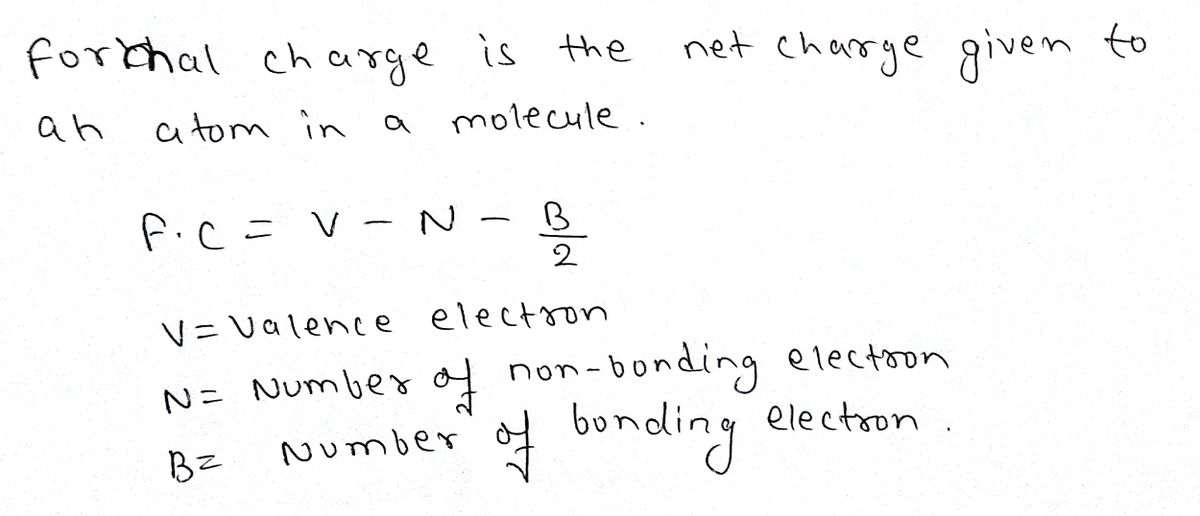 formal charge is the net charge given to
an atom in a molecule.
F.C = V - N - B/2
V= Valence electron
N= Number of non-bonding electron
B= Number of bonding electron.